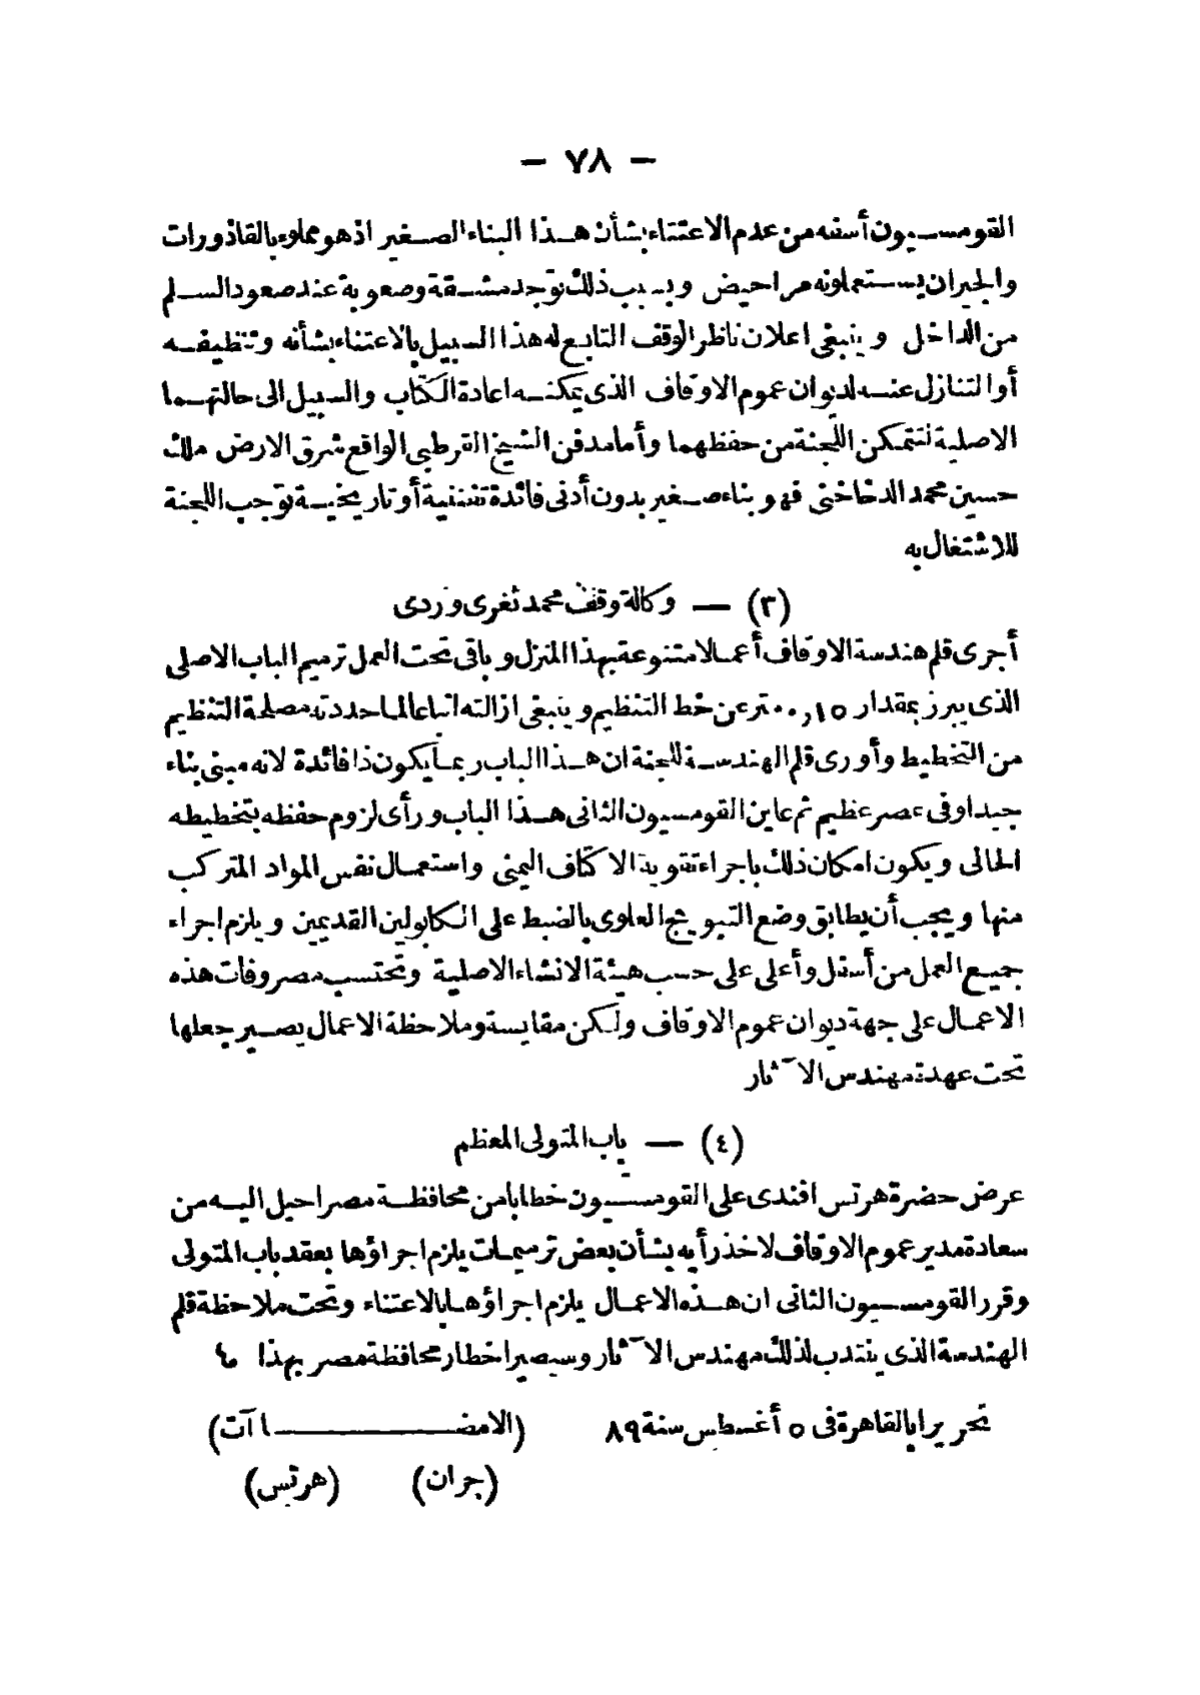 — ٧٨ —
القومسيون أسفه من عدم الاعتناء بشأن هذا البناء الصغير اذ هو مملوء بالقاذورات
والجيران يستعملونه مراحيض وبسبب ذلك توجد مشقة وصعوبة عند صعود السلم
من الداخل وينبغى اعلان ناظر الوقف التابع له هذا السبيل بالاعتناء بشأنه وتنظيفه
أو التنازل عنه لديوان عموم الاوقاف الذى يمكنه اعادة الكتاب والسبيل الى حالتهما
الاصلية لتتمكن اللجنة من حفظهما وأما مدفن الشيخ القرطبى الواقع شرق الارض ملك
حسين محمد الدخاخنى فهو بناء صغير بدون أدنى فائدة تفننية أو تاريخية توجب اللجنة
للاشتغال به
(٣) — وكالة وقف محمد ثغرى وردى
أجرى قلم هندسة الاوقاف أعمالا متنوعة بهذا المنزل وباقى تحت العمل ترميم الباب الاصلى
الذى يبرز بمقدار ٠٫١٥ متر عن خط التنظيم وينبغى ازالته اتباعا لما حددته مصلحة التنظيم
من التخطيط وأورى قلم الهندسة للجنة ان هذا الباب ربما يكون ذا فائدة لانه مبنى بناء
جيدا وفى عصر عظيم ثم عاين القومسيون الثانى هذا الباب ورأى لزوم حفظه بتخطيطه
الحالى ويكون امكان ذلك باجراء تقوية الاكتاف اليمنى واستعمال نفس المواد المتركب
منها ويجب أن يطابق وضع التبويج العلوى بالضبط على الكابولين القديمين ويلزم اجراء
جميع العمل من أسفل وأعلى على حسب هيئة الانشاء الاصلية وتحتسب مصروفات هذه
الاعمال على جهة ديوان عموم الاوقاف ولكن مقايسة وملاحظة الاعمال يصير جعلها
تحت عهدة مهندس الآثار
(٤) — باب المتولى المعظم
عرض حضرة هرتس افندى على القومسيون خطابا من محافظة مصر احيل اليه من
سعادة مدير عموم الاوقاف لاخذ رأيه بشأن بعض ترميمات يلزم اجراؤها بعقد باب المتولى
وقرر القومسيون الثانى ان هذه الاعمال يلزم اجراؤها بالاعتناء وتحت ملاحظة قلم
الهندسة الذى ينتدب لذلك مهندس الآثار وسيصير اخطار محافظة مصر بهذا
تحريرا بالقاهرة فى ٥ أغسطس سنة ٨٩ (الامضاآت)
(جران) (هرتس)